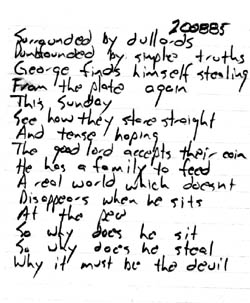 200885
Surrounded by dullards
Dumbfounded by simple truths
George finds himself stealing
From the plate again
This Sunday
See how they stare straight
And tense hoping
The good lord accepts their coin
He has a family to feed
A real world which doesnt
Disappears when he sits
At the pew
So why does he sit
So why does he steal
Why it must be the devil